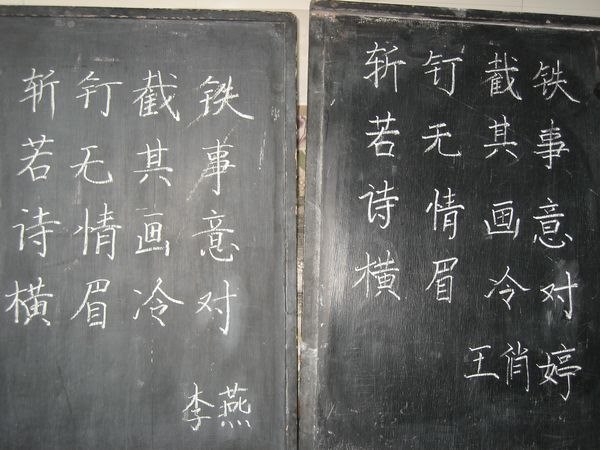 斩钉截铁
若无其事
诗情画意
横眉冷对
李燕
斩钉截铁
若无其事
诗情画意
横眉冷对
王俏婷